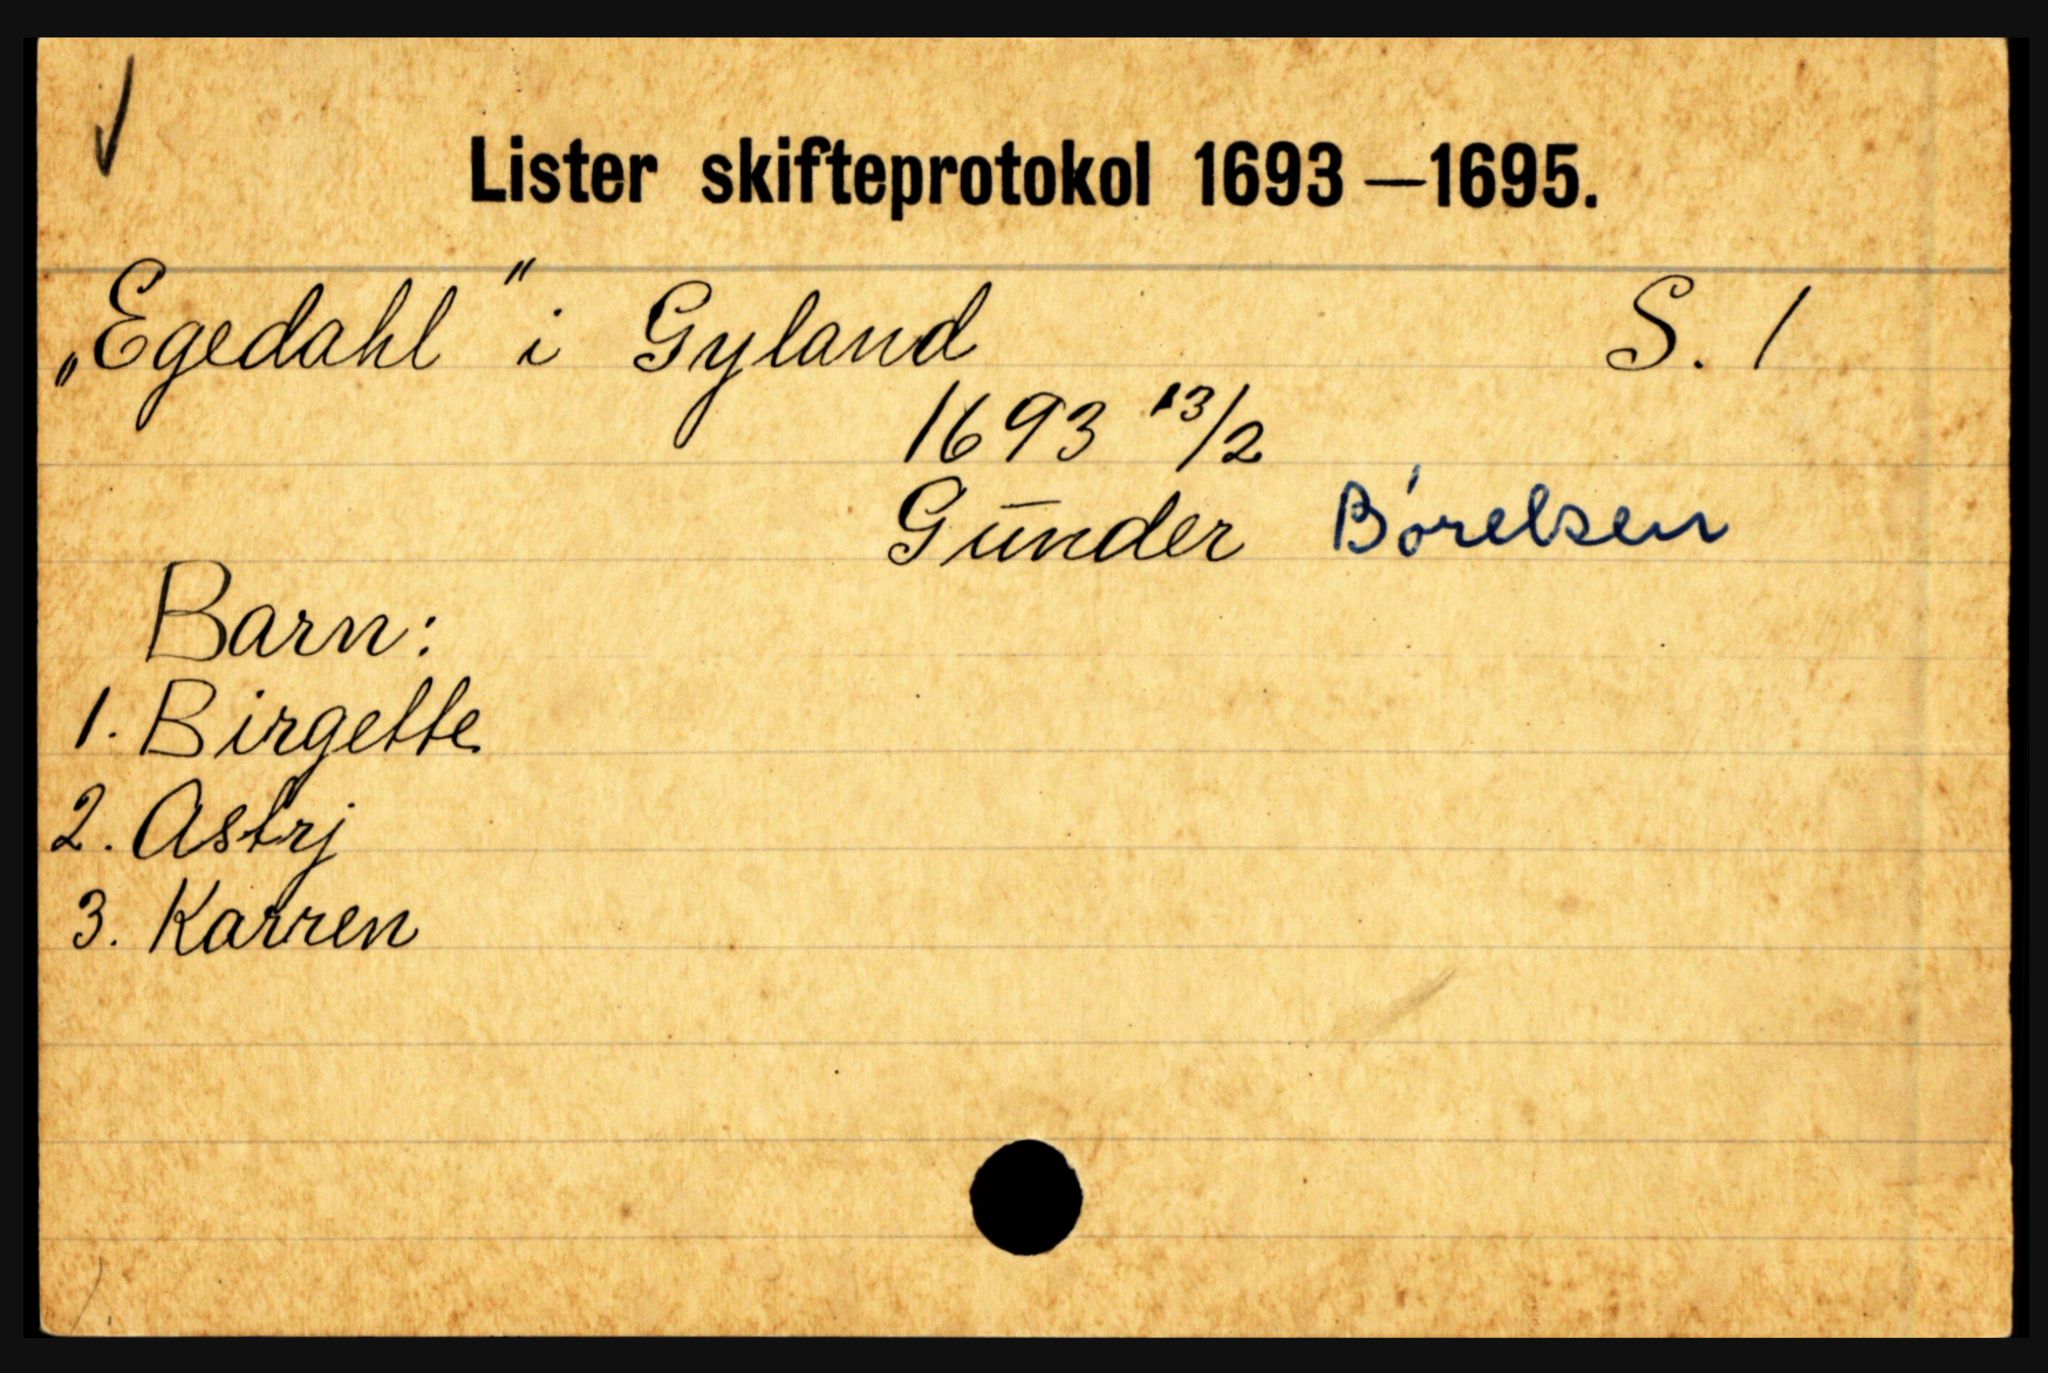 Lister skifteprotokol 1693—1695.
„Egedahl" i Gyland S. 1
1693 13/2
Gunder Børelsen
Barn:
1. Birgette
2. Astrj
3. Karren